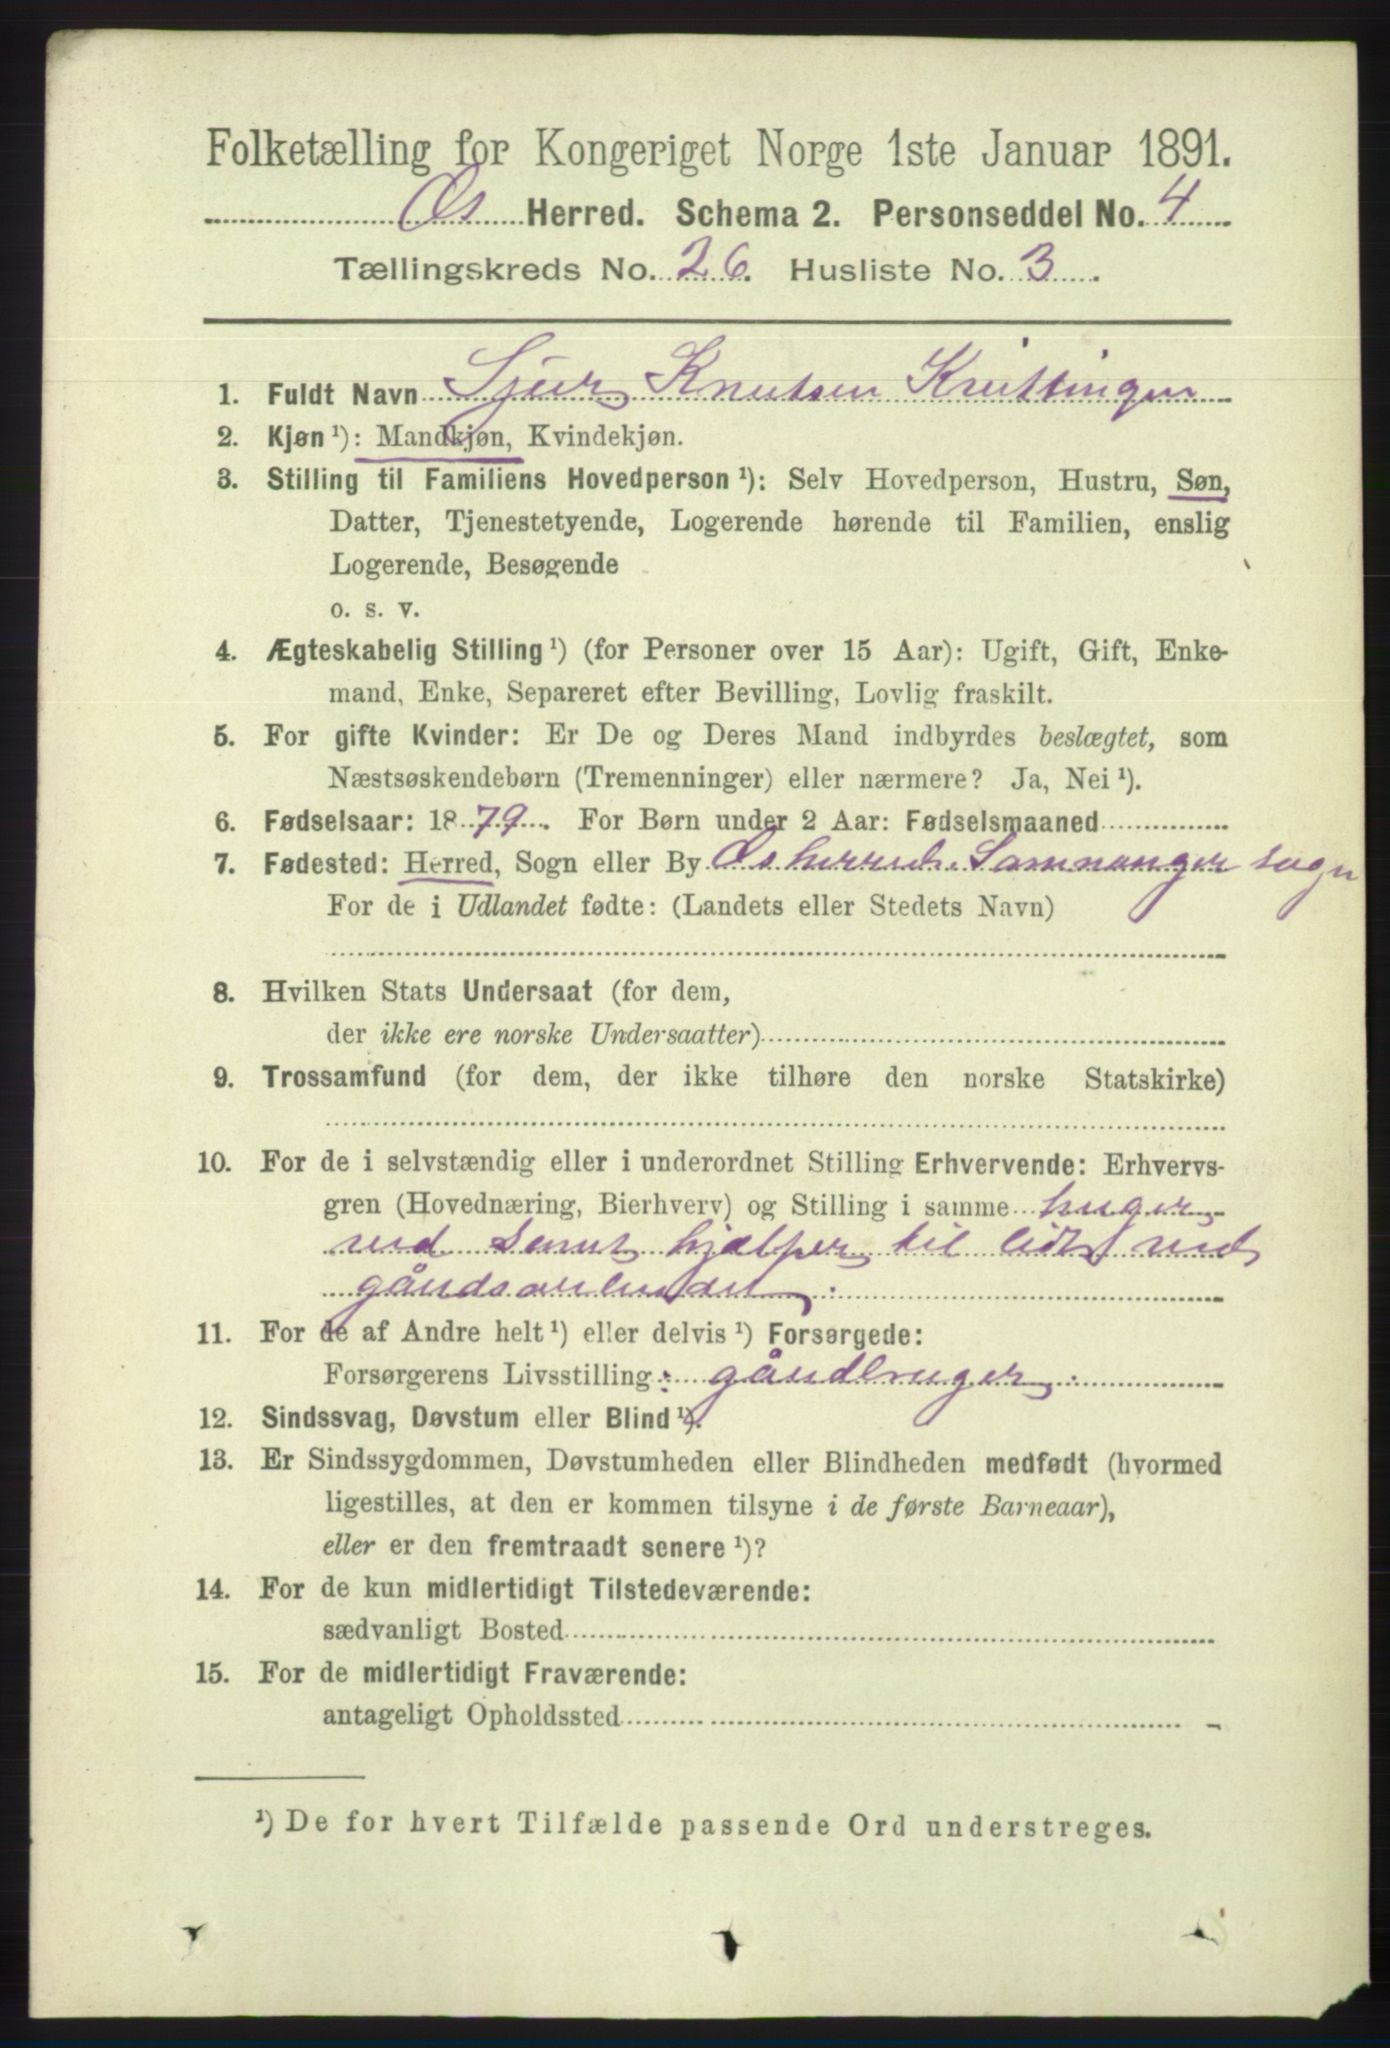 Folketælling for Kongeriget Norge 1ste Januar 1891.
Os Herred. Schema 2. Personseddel No. 4
Tællingskreds No. 26. Husliste No. 3.
1. Fuldt Navn Sjur Knutsen
2. Kjøn ¹): Mandkjøn, Kvindekjøn.
3. Stilling til Familiens Hovedperson ¹): Selv Hovedperson, Hustru, Søn,
Datter, Tjenestetyende, Logerende hørende til Familien, enslig
Logerende, Besøgende
o. s. v.
4. Ægteskabelig Stilling ¹) (for Personer over 15 Aar): Ugift, Gift, Enke-
mand, Enke, Separeret efter Bevilling, Lovlig fraskilt.
5. For gifte Kvinder: Er De og Deres Mand indbyrdes beslægtet, som
Næstsøskendebørn (Tremenninger) eller nærmere? Ja, Nei ¹).
6. Fødselsaar: 1879. For Børn under 2 Aar: Fødselsmaaned
7. Fødested: Herred, Sogn eller By Os herred. Samnanger sogn
For de i Udlandet fødte: (Landets eller Stedets Navn)
8. Hvilken Stats Undersaat (for dem,
der ikke ere norske Undersaatter)
9. Trossamfund (for dem, der ikke tilhøre den norske Statskirke)
10. For de i selvstændig eller i underordnet Stilling Erhvervende: Erhvervs-
gren (Hovednæring, Bierhverv) og Stilling i samme
ved hjælper til lidt ved
gårdsarbeidet.
11. For de af Andre helt ¹) eller delvis ¹) Forsørgede:
Forsørgerens Livsstilling: gårdbruger.
12. Sindssvag, Døvstum eller Blind ¹).
13. Er Sindssygdommen, Døvstumheden eller Blindheden medfødt (hvormed
ligestilles, at den er kommen tilsyne i de første Barneaar),
eller er den fremtraadt senere ¹)?
14. For de kun midlertidigt Tilstedeværende:
sædvanligt Bosted
15. For de midlertidigt Fraværende:
antageligt Opholdssted
¹) De for hvert Tilfælde passende Ord understreges.